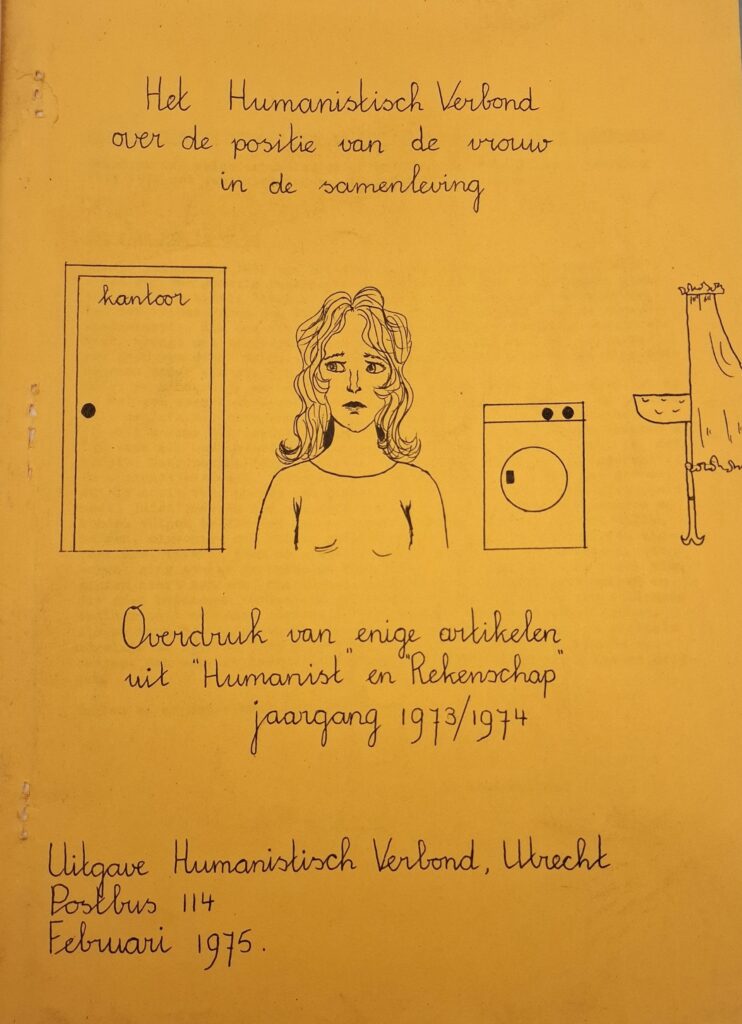 Het Humanistisch Verbond
over de positie van de vrouw
in de samenleving
kantoor
Overdruk van enige artikelen
uit "Humanist" en "Rekenschap"
jaargang 1973/1974
Uitgave Humanistisch Verbond, Utrecht
Postbus 114
Februari 1975.